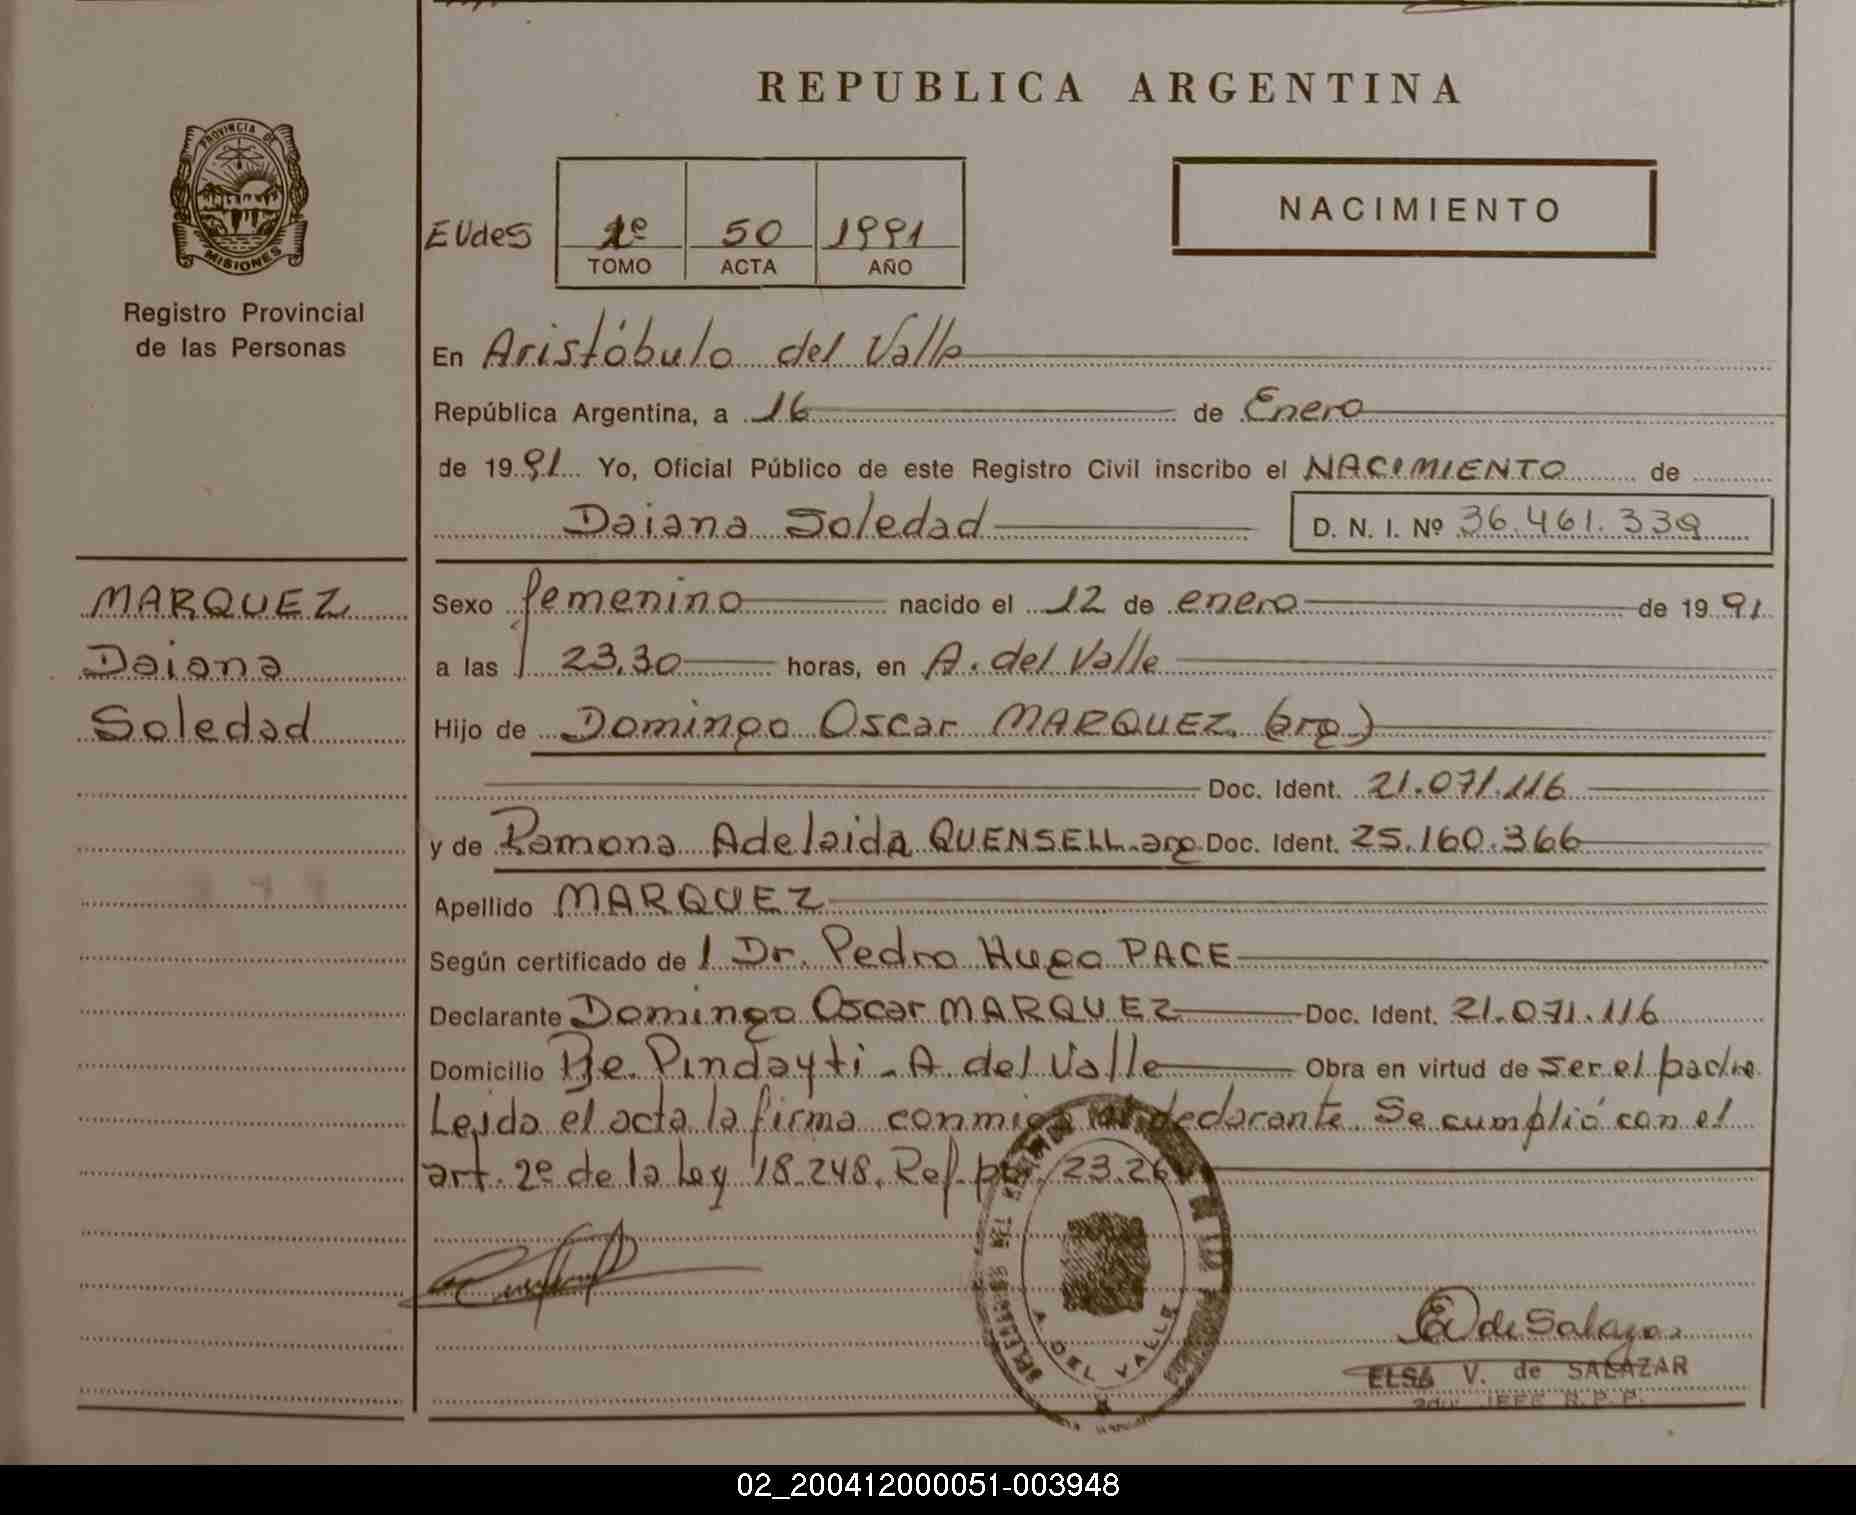 REPUBLICA ARGENTINA
PROVINCIA DE
MISIONES
Registro Provincial
de las Personas
NACIMIENTO
EUdeS
1º 50 1991
TOMO ACTA AÑO
En Aristóbulo del Valle
República Argentina, a 16 de Enero
de 1991 Yo, Oficial Público de este Registro Civil inscribo el NACIMIENTO de
Daiana Soledad D. N. I. Nº 36.461.339
MARQUEZ
Daiana
Soledad
Sexo femenino nacido el 12 de enero de 1991
a las 23,30 horas, en A. del Valle
Hijo de Domingo Oscar MARQUEZ (arg)
Doc. Ident. 21.071.116
y de Ramona Adelaida QUENSELL arg Doc. Ident. 25.160.366
Apellido MARQUEZ
Según certificado del Dr. Pedro Hugo PACE
Declarante Domingo Oscar MARQUEZ Doc. Ident. 21.071.116
Domicilio Pje. Pindayti - A del Valle Obra en virtud de ser el padre
Leida el acta la firma conmigo el declarante. Se cumplió con el
art. 2º de la Ley 18.248. Ref. por 23.26
A. DEL VALLE
E V de Salazar
ELSA V. de SALAZAR
JEFE R.P.P.
02_200412000051-003948